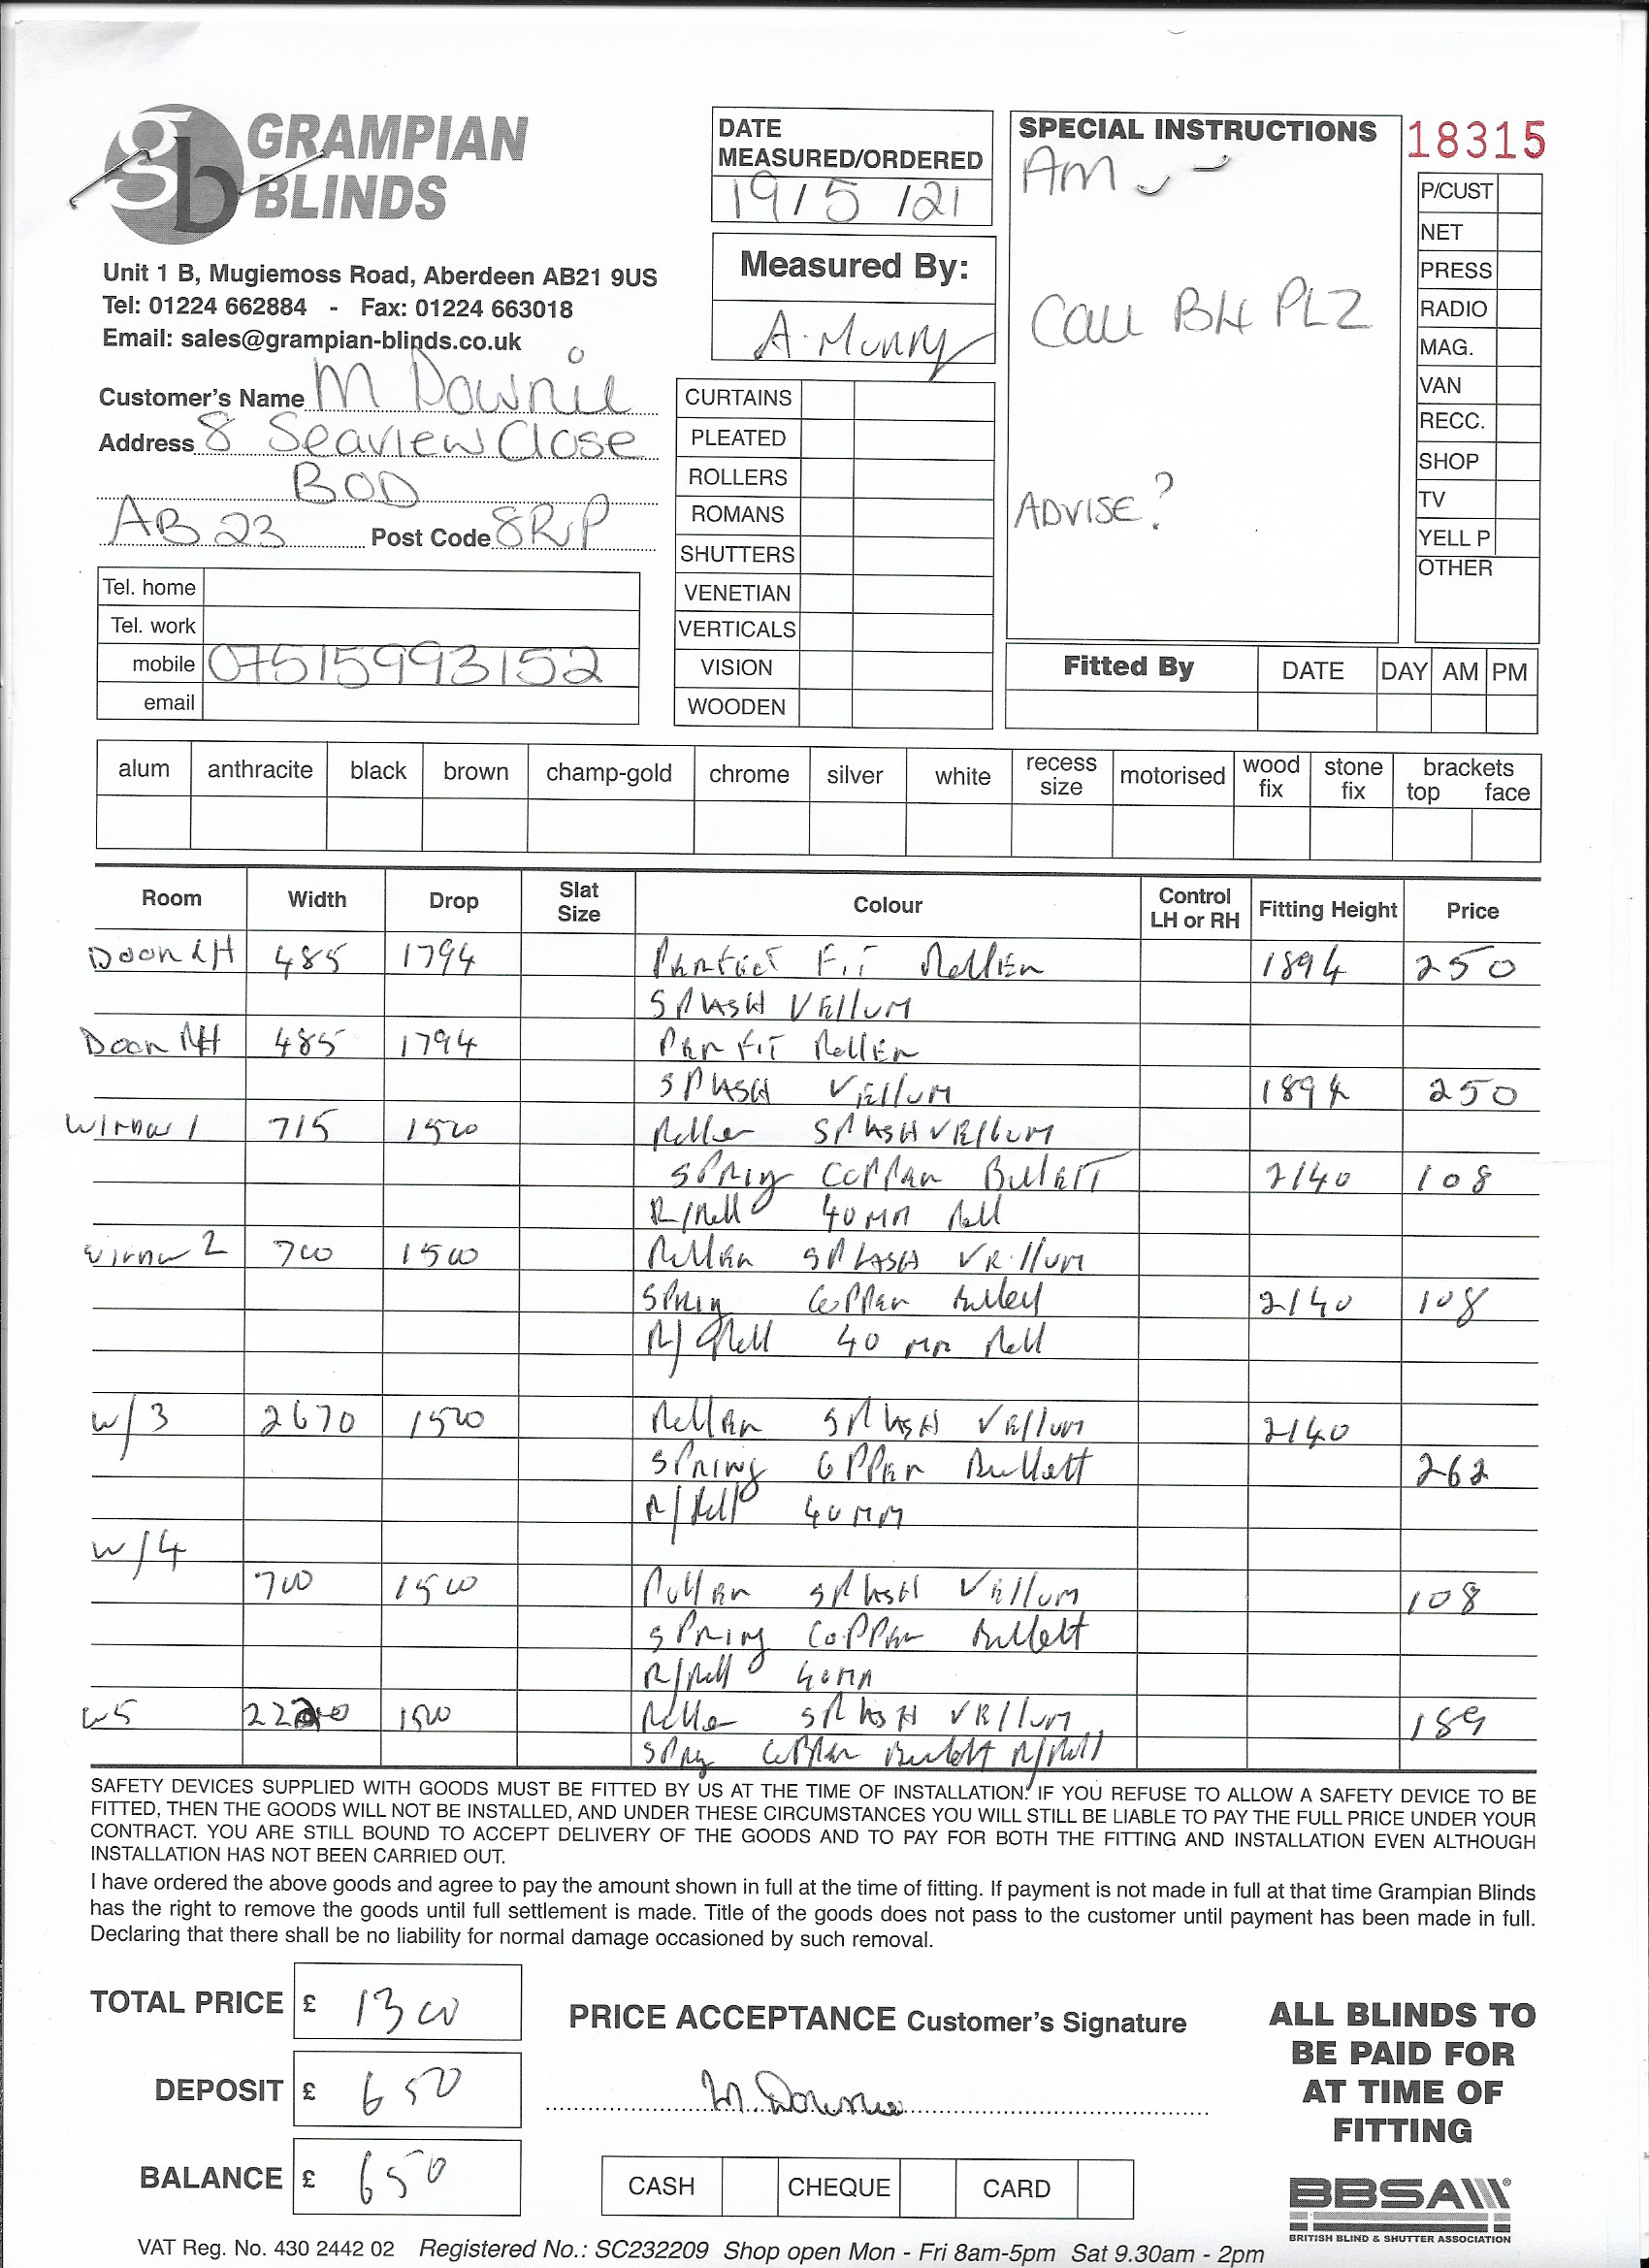 GRAMPIAN
BLINDS
Unit 1 B, Mugiemoss Road, Aberdeen AB21 9US
Tel: 01224 662884 - Fax: 01224 663018
Email: sales@grampian-blinds.co.uk
Customer's Name M Downie
Address 8 Seaview Close
BOD
AB23 Post Code 8RP
Tel. home
Tel. work
mobile 07515993152
email
DATE
MEASURED/ORDERED
19/5/21
Measured By:
A. Murray
CURTAINS
PLEATED
ROLLERS
ROMANS
SHUTTERS
VENETIAN
VERTICALS
VISION
WOODEN
SPECIAL INSTRUCTIONS
AM
Call B4 PLZ
ADVISE?
18315
P/CUST
NET
PRESS
RADIO
MAG.
VAN
RECC.
SHOP
TV
YELL P
OTHER
Fitted By DATE DAY AM PM
alum anthracite black brown champ-gold chrome silver white recess size motorised wood fix stone fix brackets top face
Room Width Drop Slat Size Colour Control LH or RH Fitting Height Price
Door LH 485 1794 PERFECT FIT ROLLER 1894 250
SPLASH VELLUM
Door RH 485 1794 PER FIT ROLLER
SPLASH VELLUM 1894 250
Window 1 715 1500 Roller SPLASH VELLUM
SPRING COPPER BULLETT 2140 108
R/Roll 40MM Roll
Window 2 700 1500 Roller SPLASH VELLUM
SPRING COPPER Bullett 2140 108
R/Roll 40 MM Roll
W/3 2670 1500 Roller SPLASH VELLUM 2140
SPRING COPPER Bullett 262
R/Roll 40MM
W/4
700 1500 Roller SPLASH VELLUM 108
SPRING COPPER Bullett
R/Roll 40MM
W5 1500 Roller SPLASH VELLUM 189
SPRING COPPER Bullett R/Roll
SAFETY DEVICES SUPPLIED WITH GOODS MUST BE FITTED BY US AT THE TIME OF INSTALLATION. IF YOU REFUSE TO ALLOW A SAFETY DEVICE TO BE
FITTED, THEN THE GOODS WILL NOT BE INSTALLED, AND UNDER THESE CIRCUMSTANCES YOU WILL STILL BE LIABLE TO PAY THE FULL PRICE UNDER YOUR
CONTRACT. YOU ARE STILL BOUND TO ACCEPT DELIVERY OF THE GOODS AND TO PAY FOR BOTH THE FITTING AND INSTALLATION EVEN ALTHOUGH
INSTALLATION HAS NOT BEEN CARRIED OUT.
I have ordered the above goods and agree to pay the amount shown in full at the time of fitting. If payment is not made in full at that time Grampian Blinds
has the right to remove the goods until full settlement is made. Title of the goods does not pass to the customer until payment has been made in full.
Declaring that there shall be no liability for normal damage occasioned by such removal.
TOTAL PRICE £ 1300
DEPOSIT £ 650
BALANCE £ 650
PRICE ACCEPTANCE Customer's Signature
M. Downie
CASH CHEQUE CARD
ALL BLINDS TO
BE PAID FOR
AT TIME OF
FITTING
BBSA
BRITISH BLIND & SHUTTER ASSOCIATION
VAT Reg. No. 430 2442 02 Registered No.: SC232209 Shop open Mon - Fri 8am-5pm Sat 9.30am - 2pm